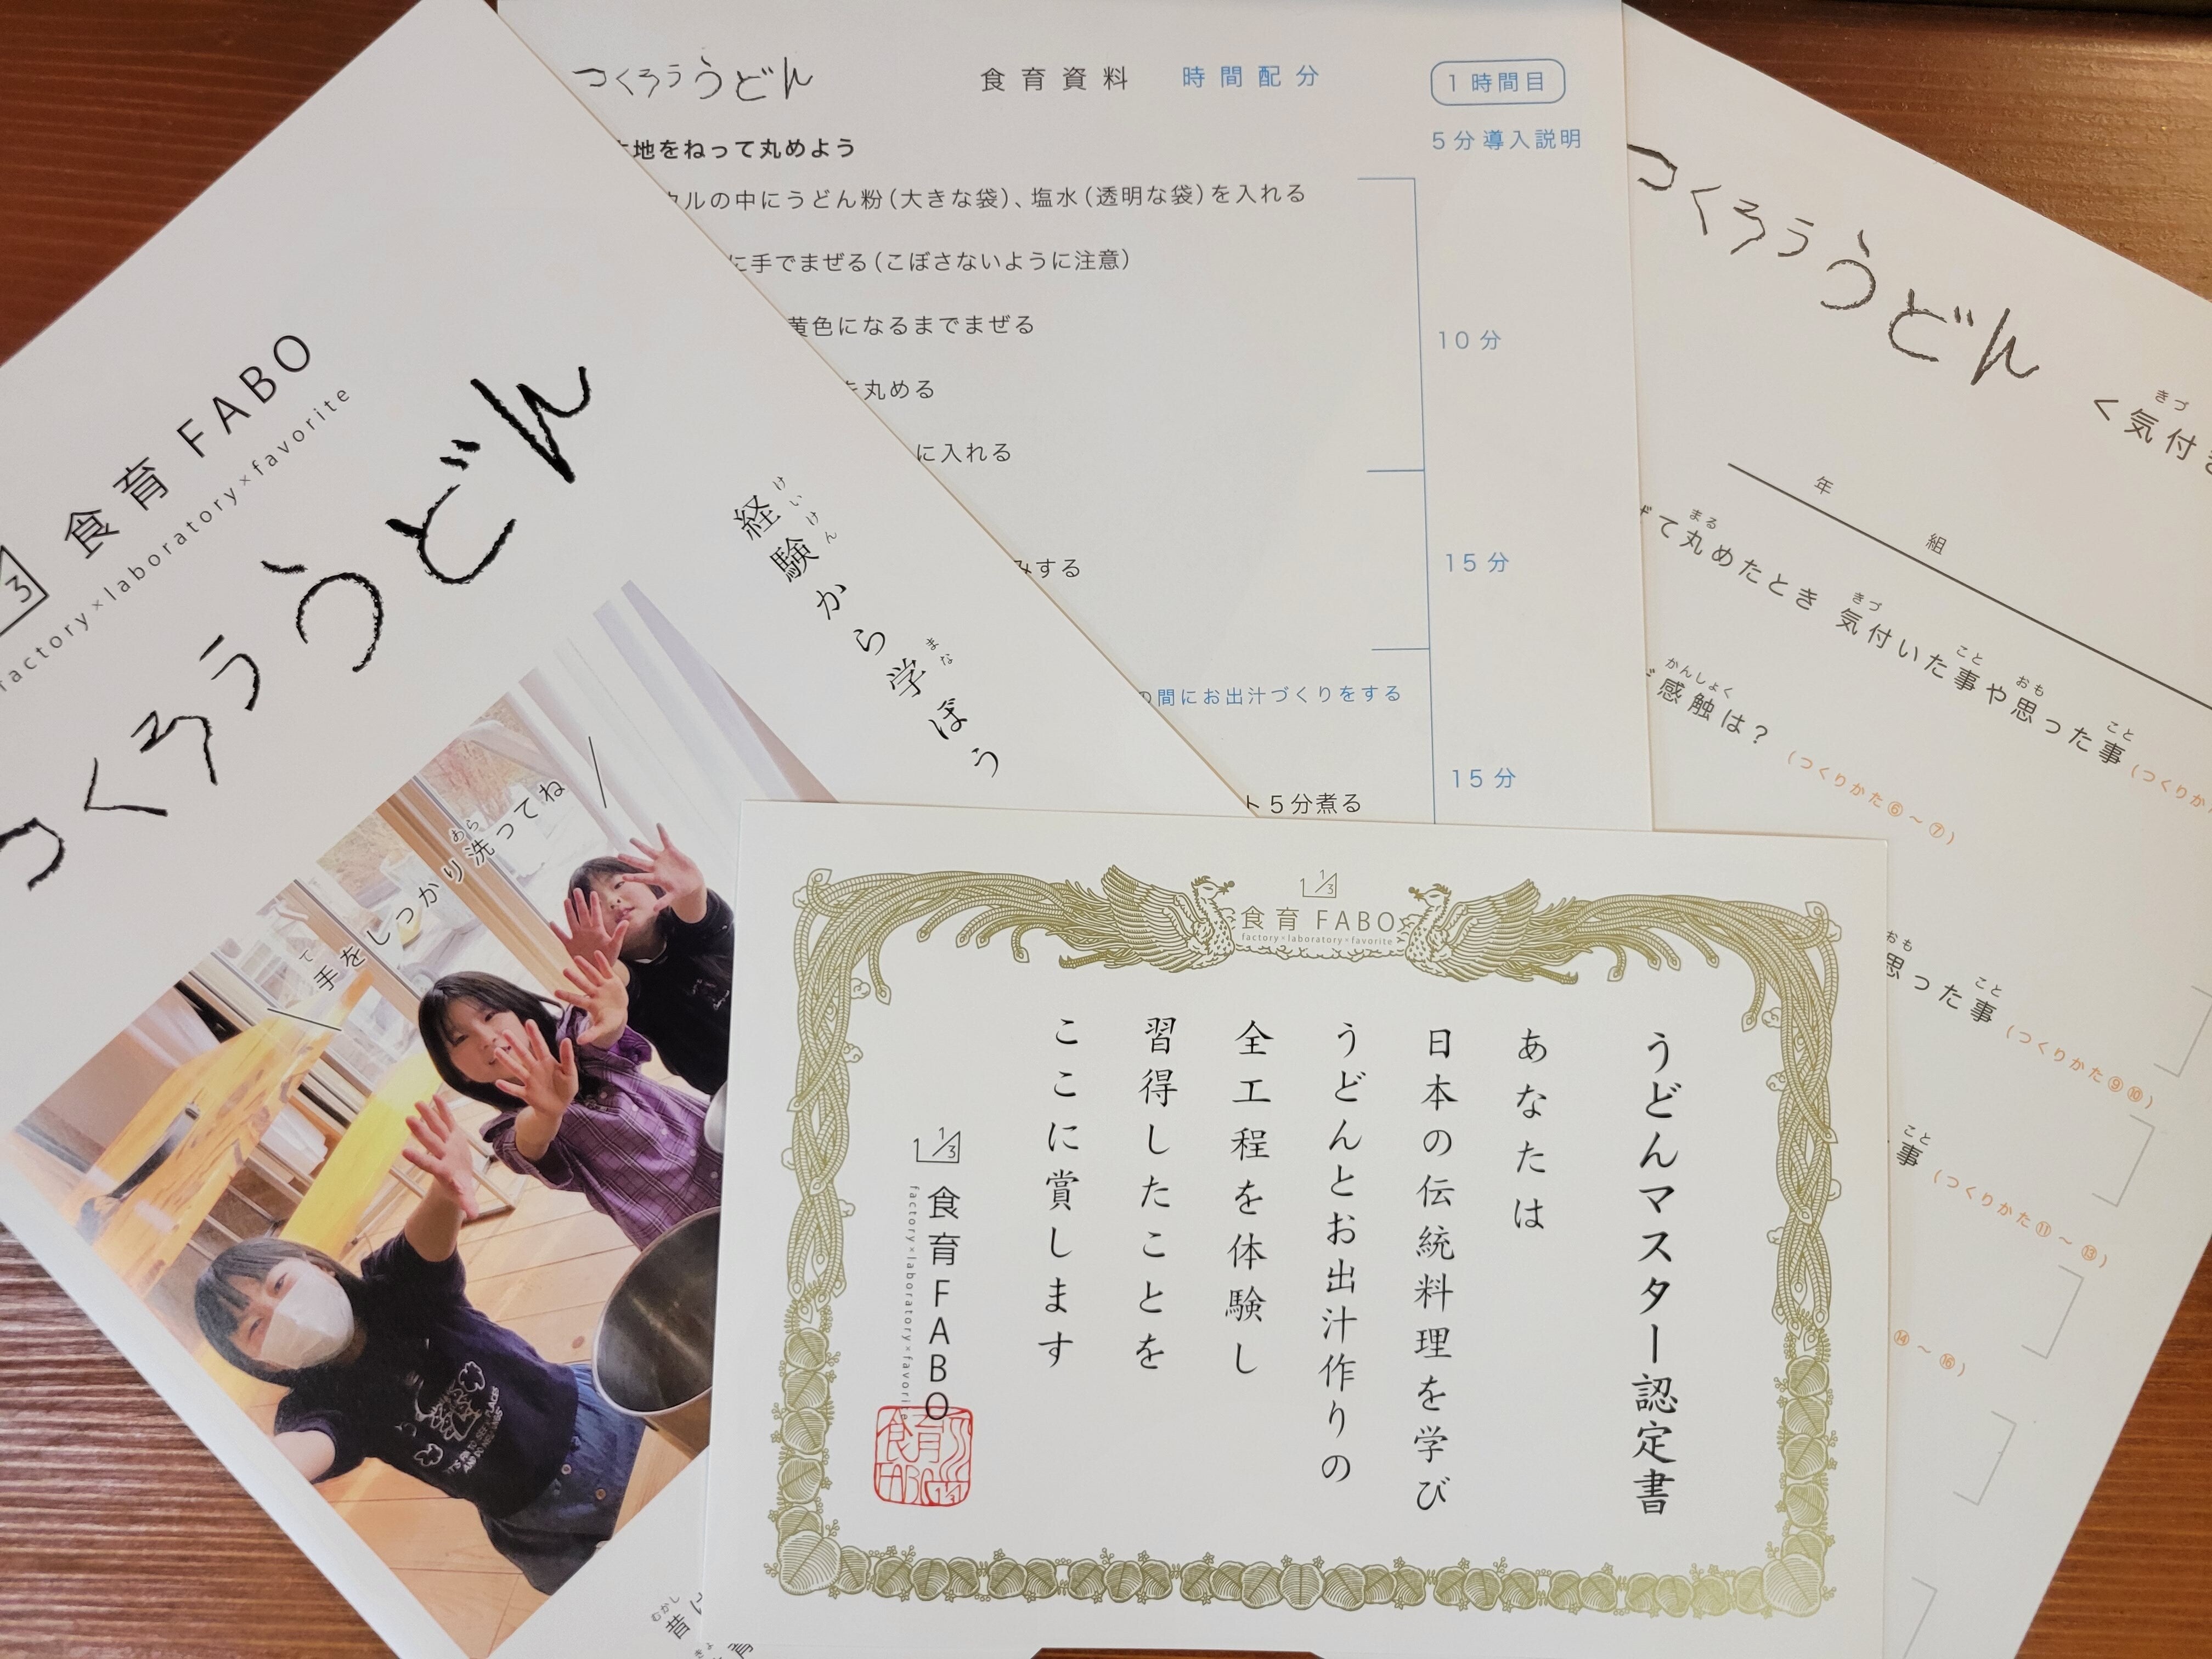 1/3 食育 FABO
factory×laboratory×favorite
つくろううどん
経験から学ぼう
けいけん
まな
手をしっかり洗ってね
て
あら
むかし
昔は
つくろううどん
食育資料 時間配分
1時間目
5分導入説明
地をねって丸めよう
ウルの中にうどん粉(大きな袋)、塩水(透明な袋)を入れる
に手でまぜる(こぼさないように注意)
黄色になるまでまぜる
丸める
に入れる
10分
みする
15分
の間にお出汁づくりをする
15分
ト5分煮る
つくろううどん
く気付き
きづ
年 組
ぜて丸めたとき 気付いた事や思った事(つくりかた
まる きづ こと おも こと
感触は?(つくりかた⑥〜⑦)
かんしょく
思った事(つくりかた⑨⑩)
おも こと
事(つくりかた⑪〜⑬)
こと
⑭〜⑯)
1 1/3
食育 FABO
factory×laboratory×favorite
うどんマスター認定書
あなたは
日本の伝統料理を学び
うどんとお出汁作りの
全工程を体験し
習得したことを
ここに賞します
1 1/3 食育FABO
factory×laboratory×favorite
食育
FABO 1 1/3